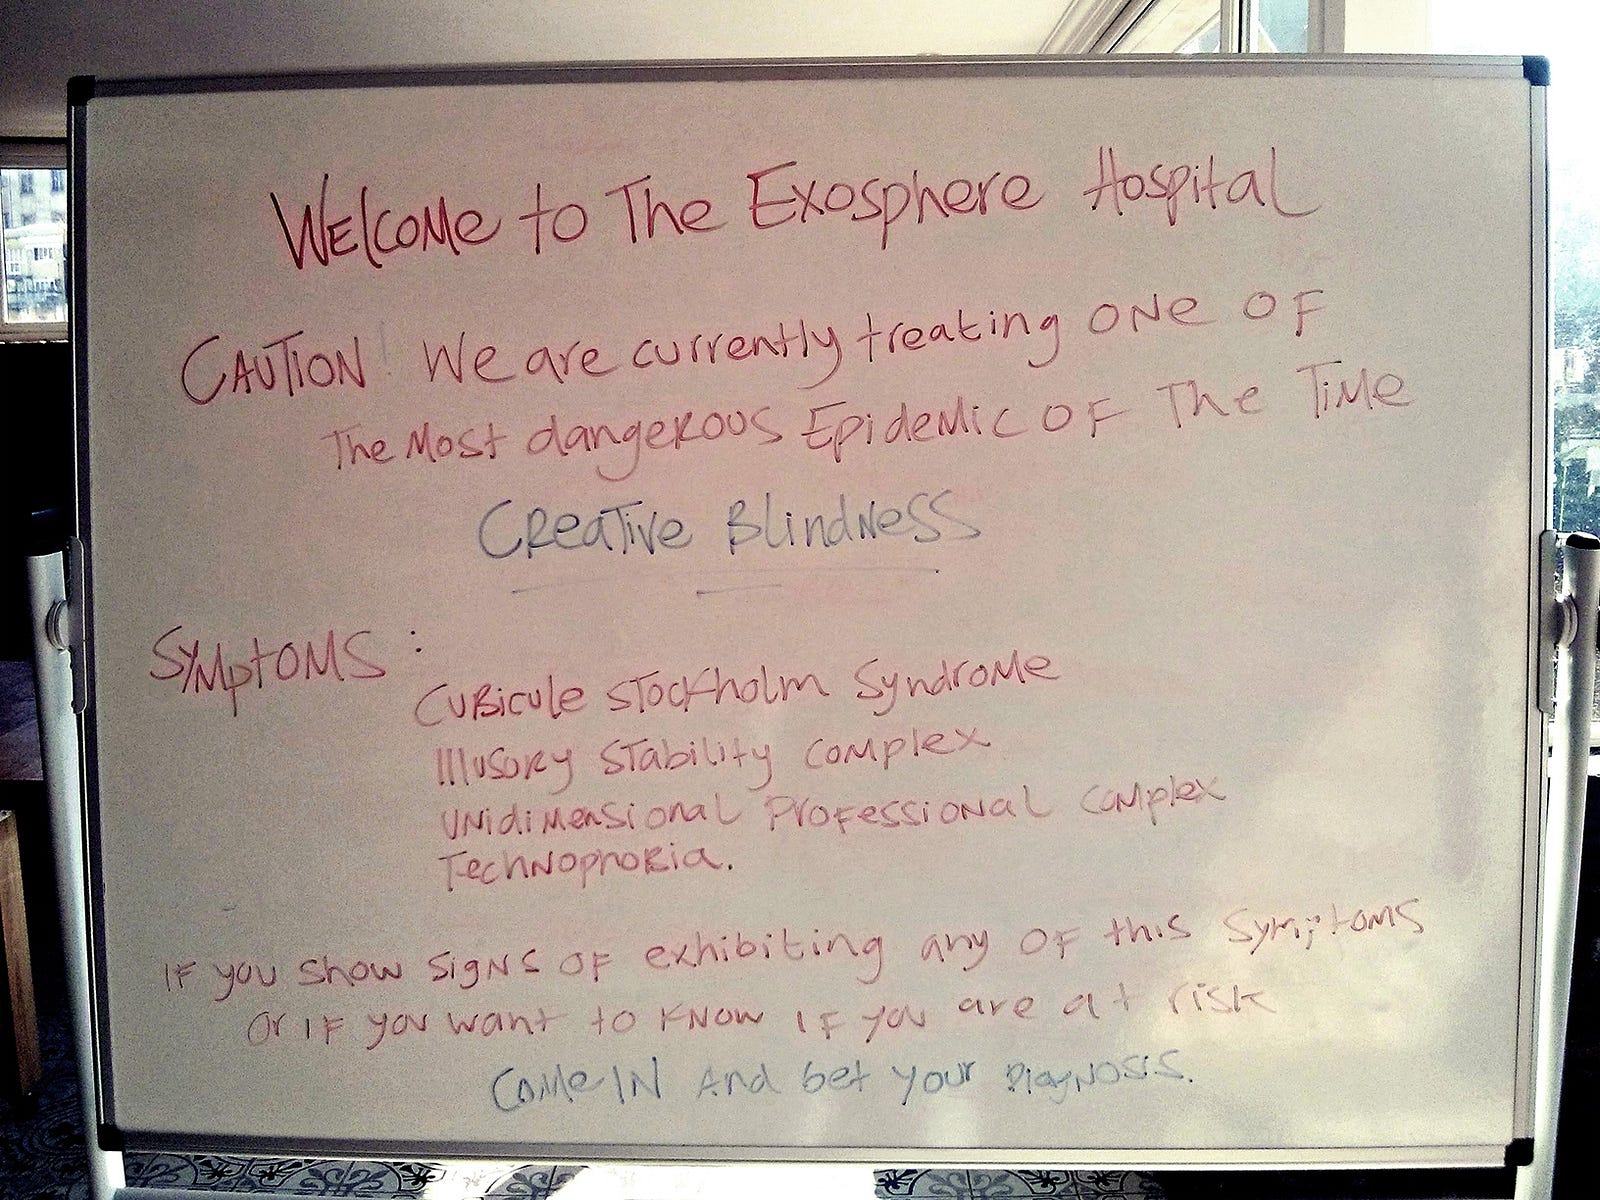 Welcome to The Exosphere Hospital
CAUTION! We are currently treating one of
The Most dangerous Epidemic of The Time
Creative Blindness
Symptoms :
Cubicule Stockholm Syndrome
Illusory Stability Complex
Unidimensional Professional Complex
Technophobia.
If you show signs of exhibiting any of this symptoms
Or if you want to know if you are at risk
Come In And get your Diagnosis.